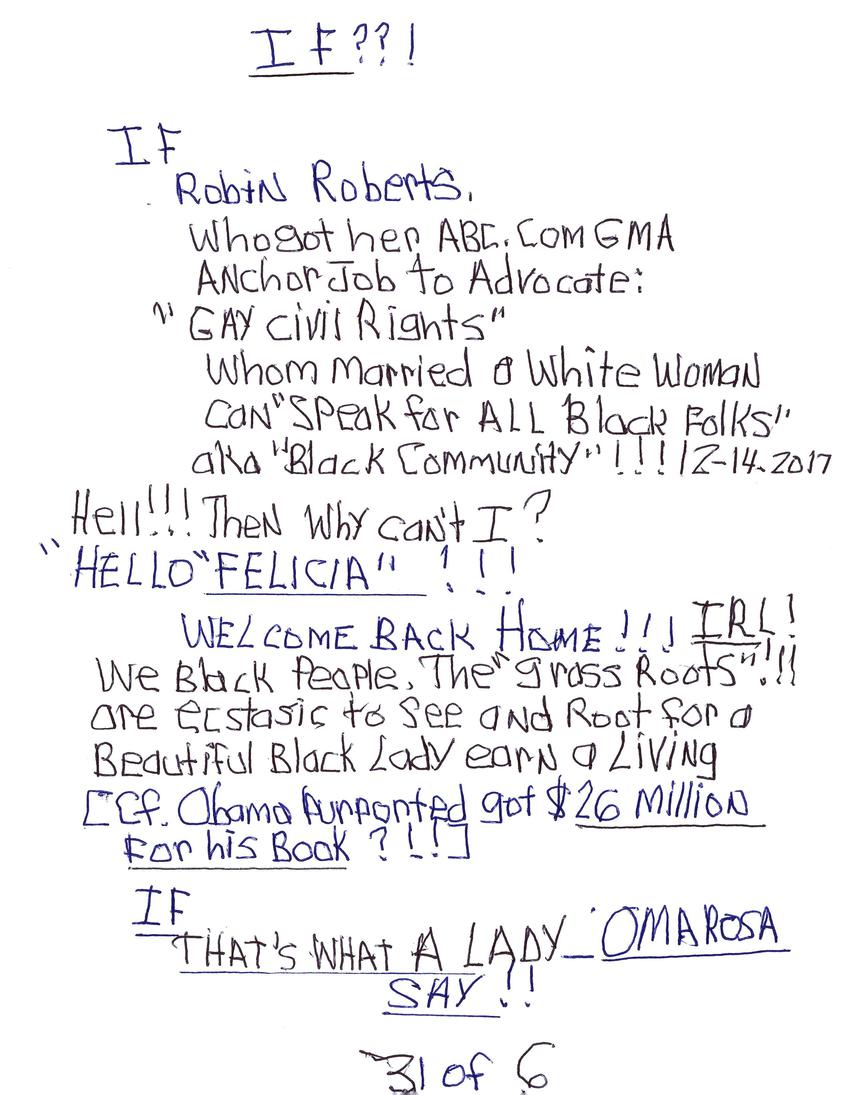 IF??!
IF
Robin Roberts.
Who got her ABC.COM GMA
ANchor Job to Advocate:
"GAY Civil Rights"
Whom Married a White Woman
Can "Speak for ALL Black Folks"
aka "Black Community"!!! 12-14-2017
Hell!!! Then Why can't I?
"HELLO "FELICIA" !!!
WELCOME BACK HOME!!! IRL!
We Black People, The "grass Roots"!!!
are ecstasic to See and Root for a
Beautiful Black Lady earn a Living
[Cf. Obama purported got $26 Million
For his Book ?!!]
IF
THAT'S WHAT A LADY_ OMAROSA
SAY!!
31 of 6